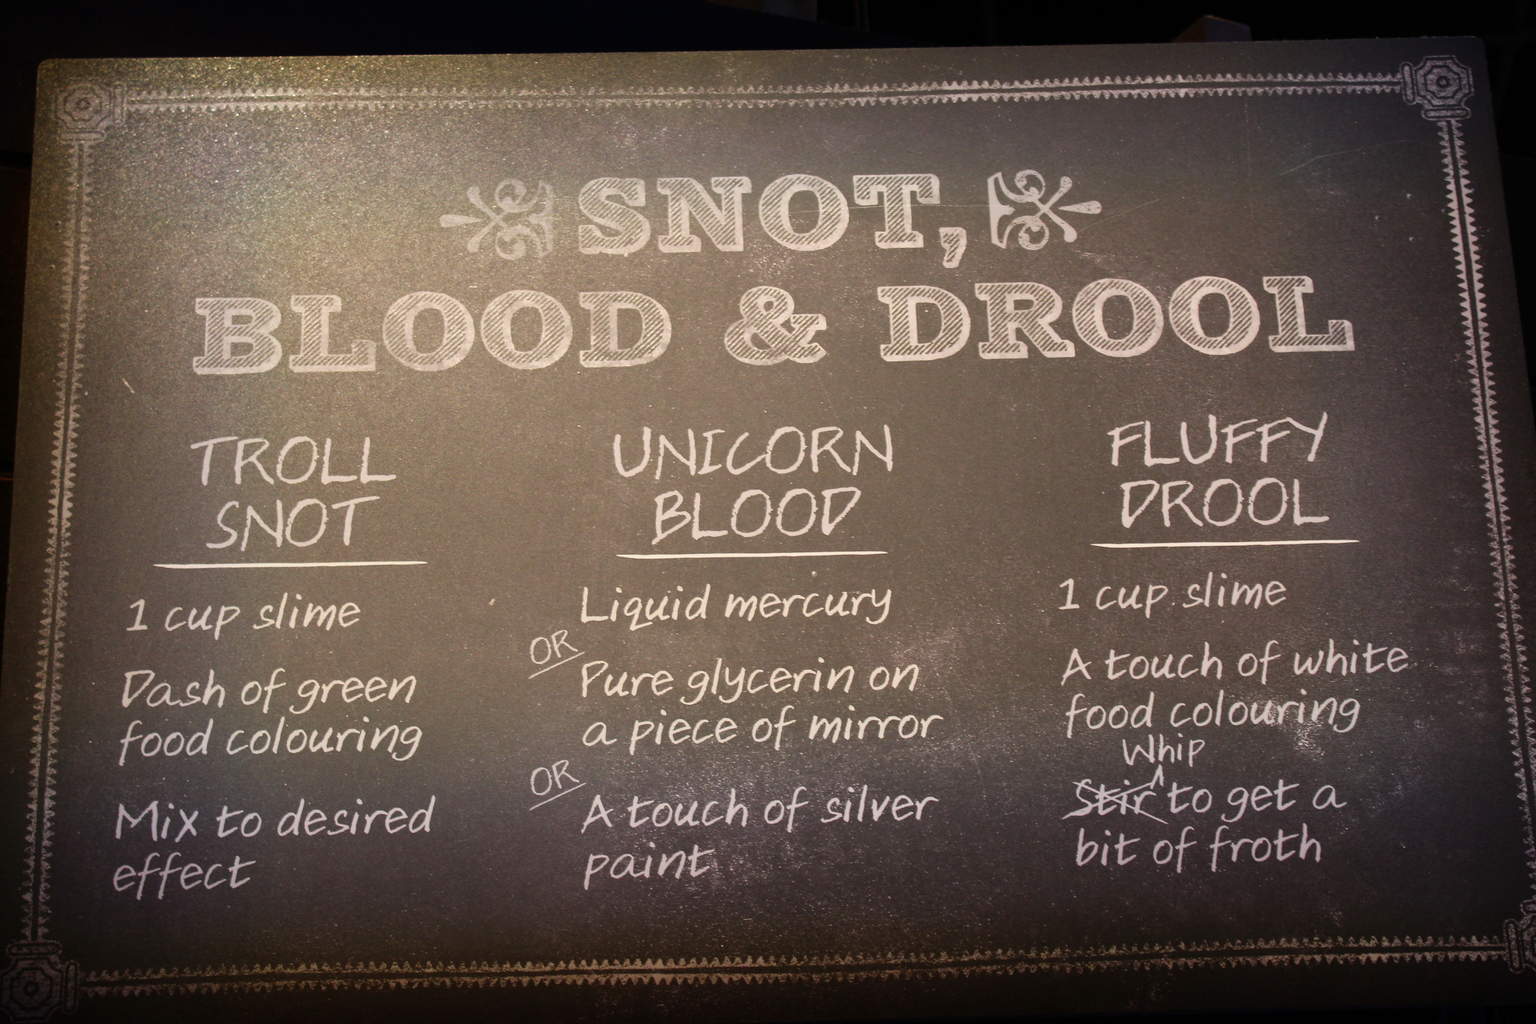 SNOT,
BLOOD & DROOL
TROLL
SNOT
1 cup slime
Dash of green
food colouring
Mix to desired
effect
UNICORN
BLOOD
Liquid mercury
OR
Pure glycerin on
a piece of mirror
OR
A touch of silver
paint
FLUFFY
DROOL
1 cup slime
A touch of white
food colouring
Whip
Stir to get a
bit of froth